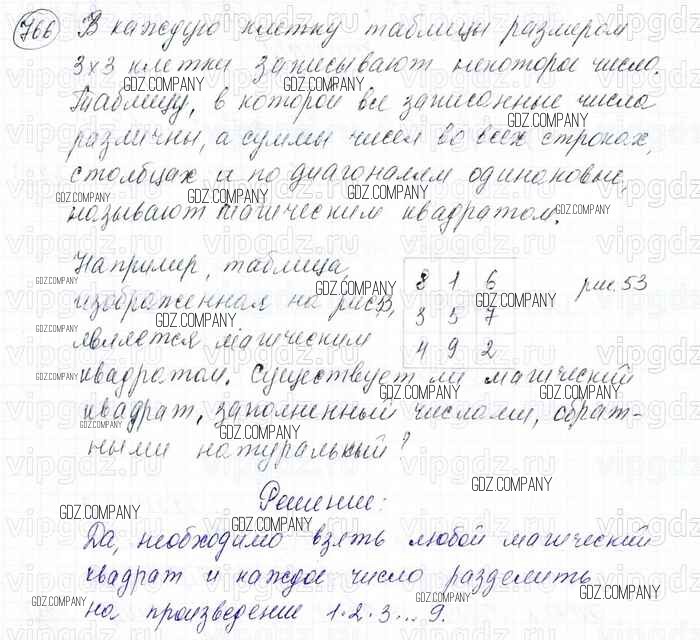 766 В каждую клетку таблицы размером
3×3 клетки записывают некоторое число.
Таблицу, в которой все записанные числа
различны, а суммы чисел во всех строках,
столбцах и по диагоналям одинаковые,
называют магическим квадратом.
Например, таблица,
изображенная на рис. 53,
является магическим
квадратом. Существует ли магический
квадрат, заполненный числами, обрат-
ными натуральным?
8 1 6
3 5 7
4 9 2
рис. 53
Решение:
Да, необходимо взять любой магический
квадрат и каждое число разделить
на произведение 1·2·3...9.
GDZ.COMPANY
vipgdz.ru